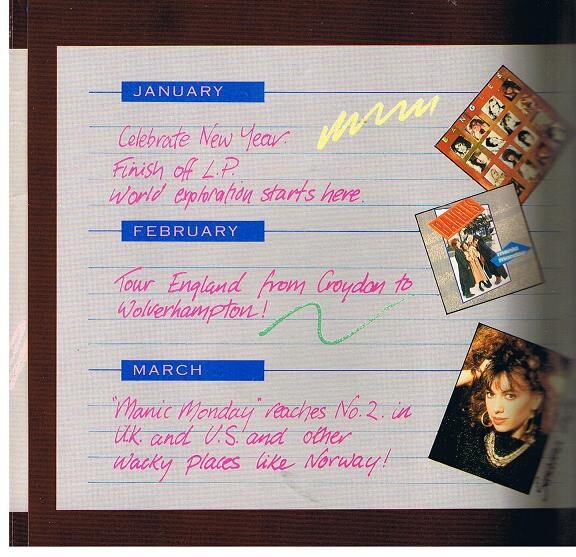 JANUARY
Celebrate New Year.
Finish off L.P.
World exploration starts here.
BANGLES
FEBRUARY
BANGLES
Tour England from Croydon to
Wolverhampton!
MARCH
"Manic Monday" reaches No. 2. in
U.K. and U.S. and other
wacky places like Norway!